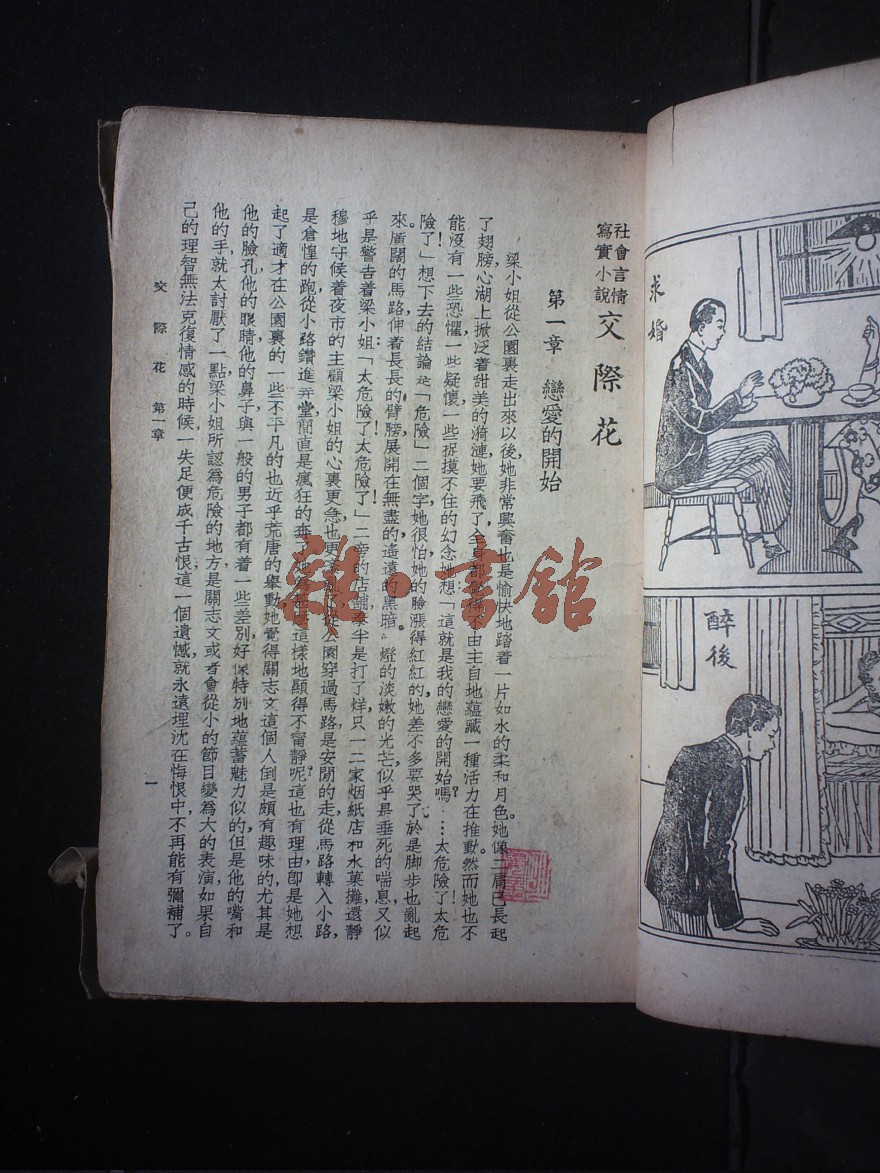 求婚
醉後
社會言情
寫實小說
交際花
第一章 戀愛的開始
梁小姐從公園裏走出來以後，她非常興奮也是愉快地踏着一片如水的柔和月色。她像二肩已長起
了翅膀，心湖上掀泛着甜美的漪漣，她要飛了，全身都 不由主自地蘊藏一種活力在推動。然而她也不
能沒有一些恐懼，一些疑懷，一些捉摸不住的幻念，她想「這就是我的戀愛的開始嗎？……太危險了！太危
險了！」想下去的結論是「危險」二個字，她很怕，她的臉漲得紅紅的，她差不多要哭了，於是脚步也亂起
來。廣闊的馬路伸着長長的臂膀，展開在無盡的遙遠的黑暗。 燈的淡嫩的光芒，似乎是垂死的喘息，又似
乎是警告着梁小姐：「太危險了！太危險了！」二旁的店舖 是打了烊，只一二家烟紙店和水菓攤還靜
穆地守候着夜市的主顧。梁小姐的心裏更急，也更 從公園穿過馬路是安閒的走，從馬路轉入小路，
是倉惶的跑，從小路鑽進弄堂，簡直是瘋狂的奔了。她 這樣地顯得不甯靜呢？這也有理由，卽是她想
起了適才在公園裏的一些不平凡的也近乎荒唐的舉動，她覺得關志文這個人倒是頗有趣味的，尤其是
他的臉孔，他的眼睛，他的鼻子，與一般的男子都有着一些差別，好像特別地蘊蓄魅力似的，但是他的嘴和
他的手，就太討厭了一點，梁小姐所認爲危險的地方，是關志文或者會從小的節目變爲大的表演，如果自
己的理智無法克復情感的時候，一失足便成千古恨，這一個遺憾，就永遠埋沈在悔恨中，不再能有彌補了。
交際花 第一章
一
雜·書館